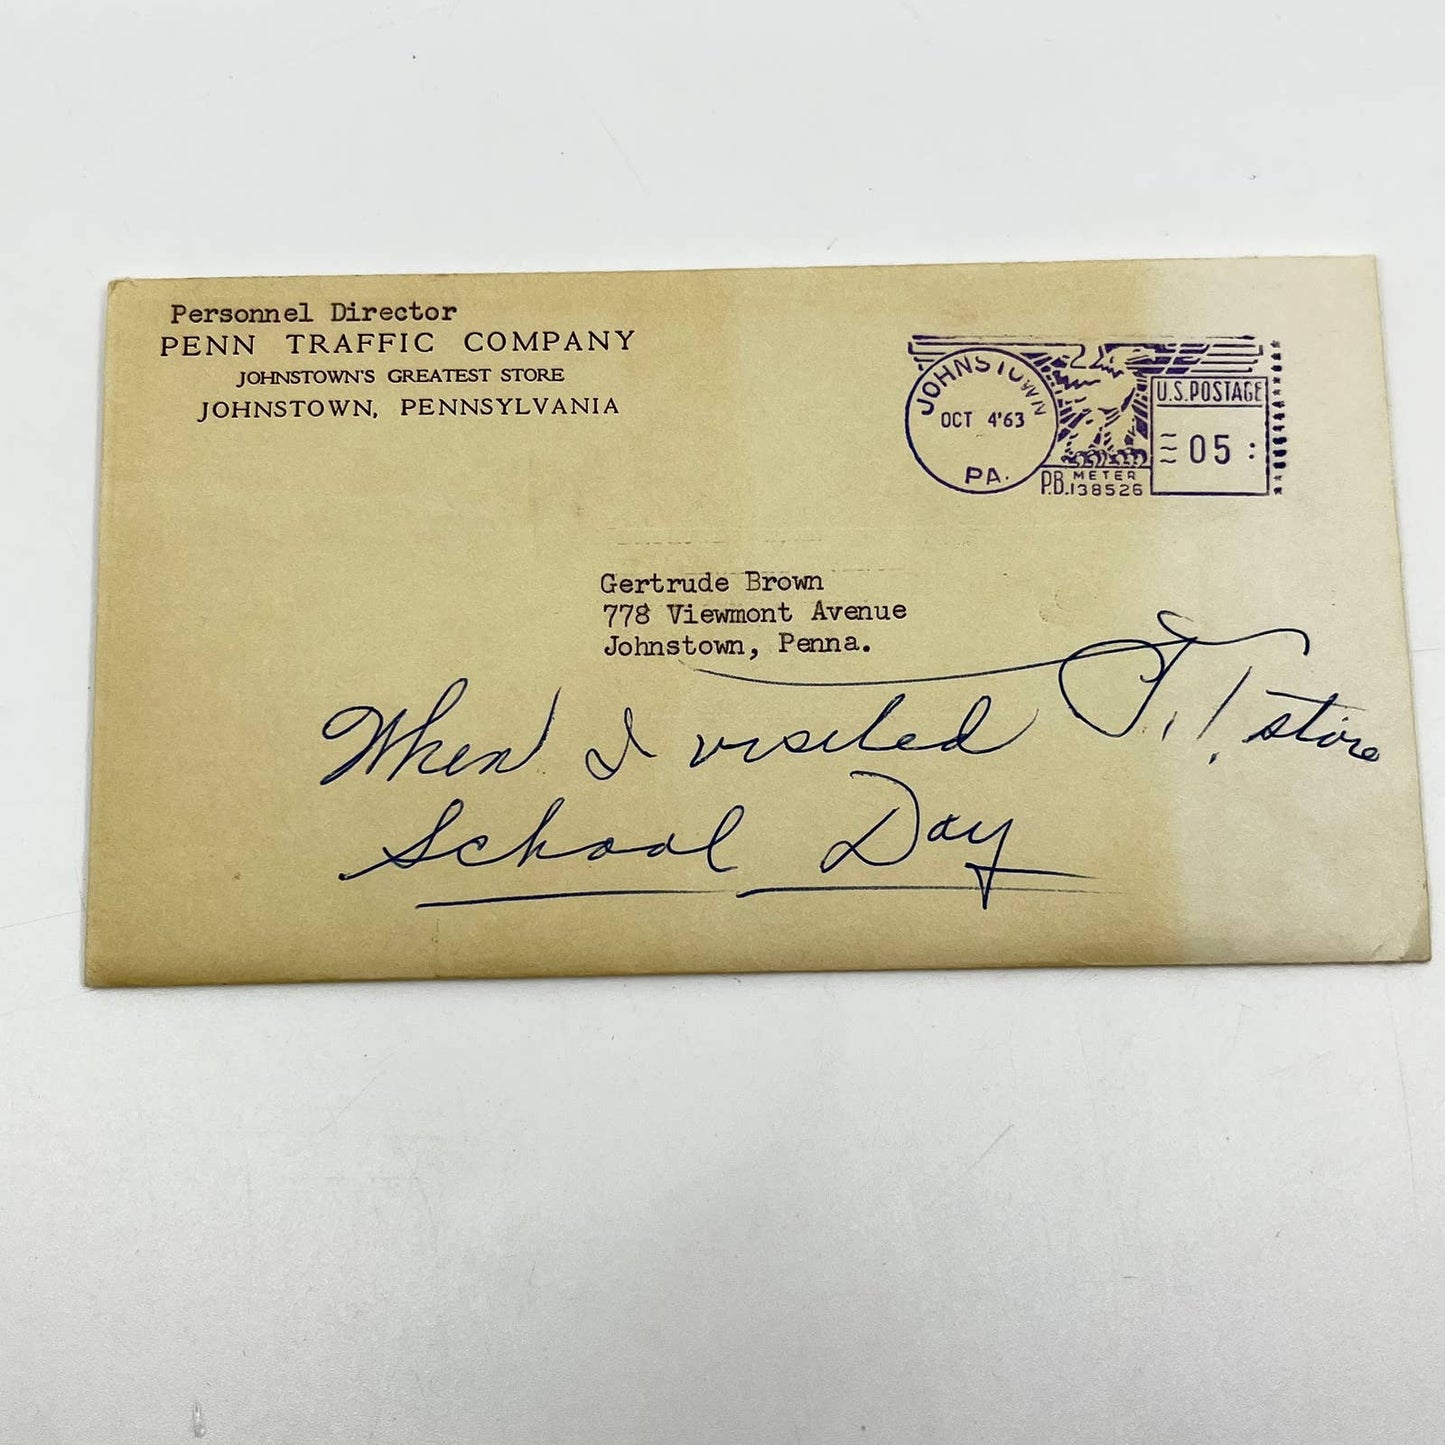 Personnel Director
PENN TRAFFIC COMPANY
JOHNSTOWN'S GREATEST STORE
JOHNSTOWN, PENNSYLVANIA
JOHNSTOWN
OCT 4'63
PA.
P.B. METER
138526
U.S. POSTAGE
05
Gertrude Brown
778 Viewmont Avenue
Johnstown, Penna.
When I visited store
School Day